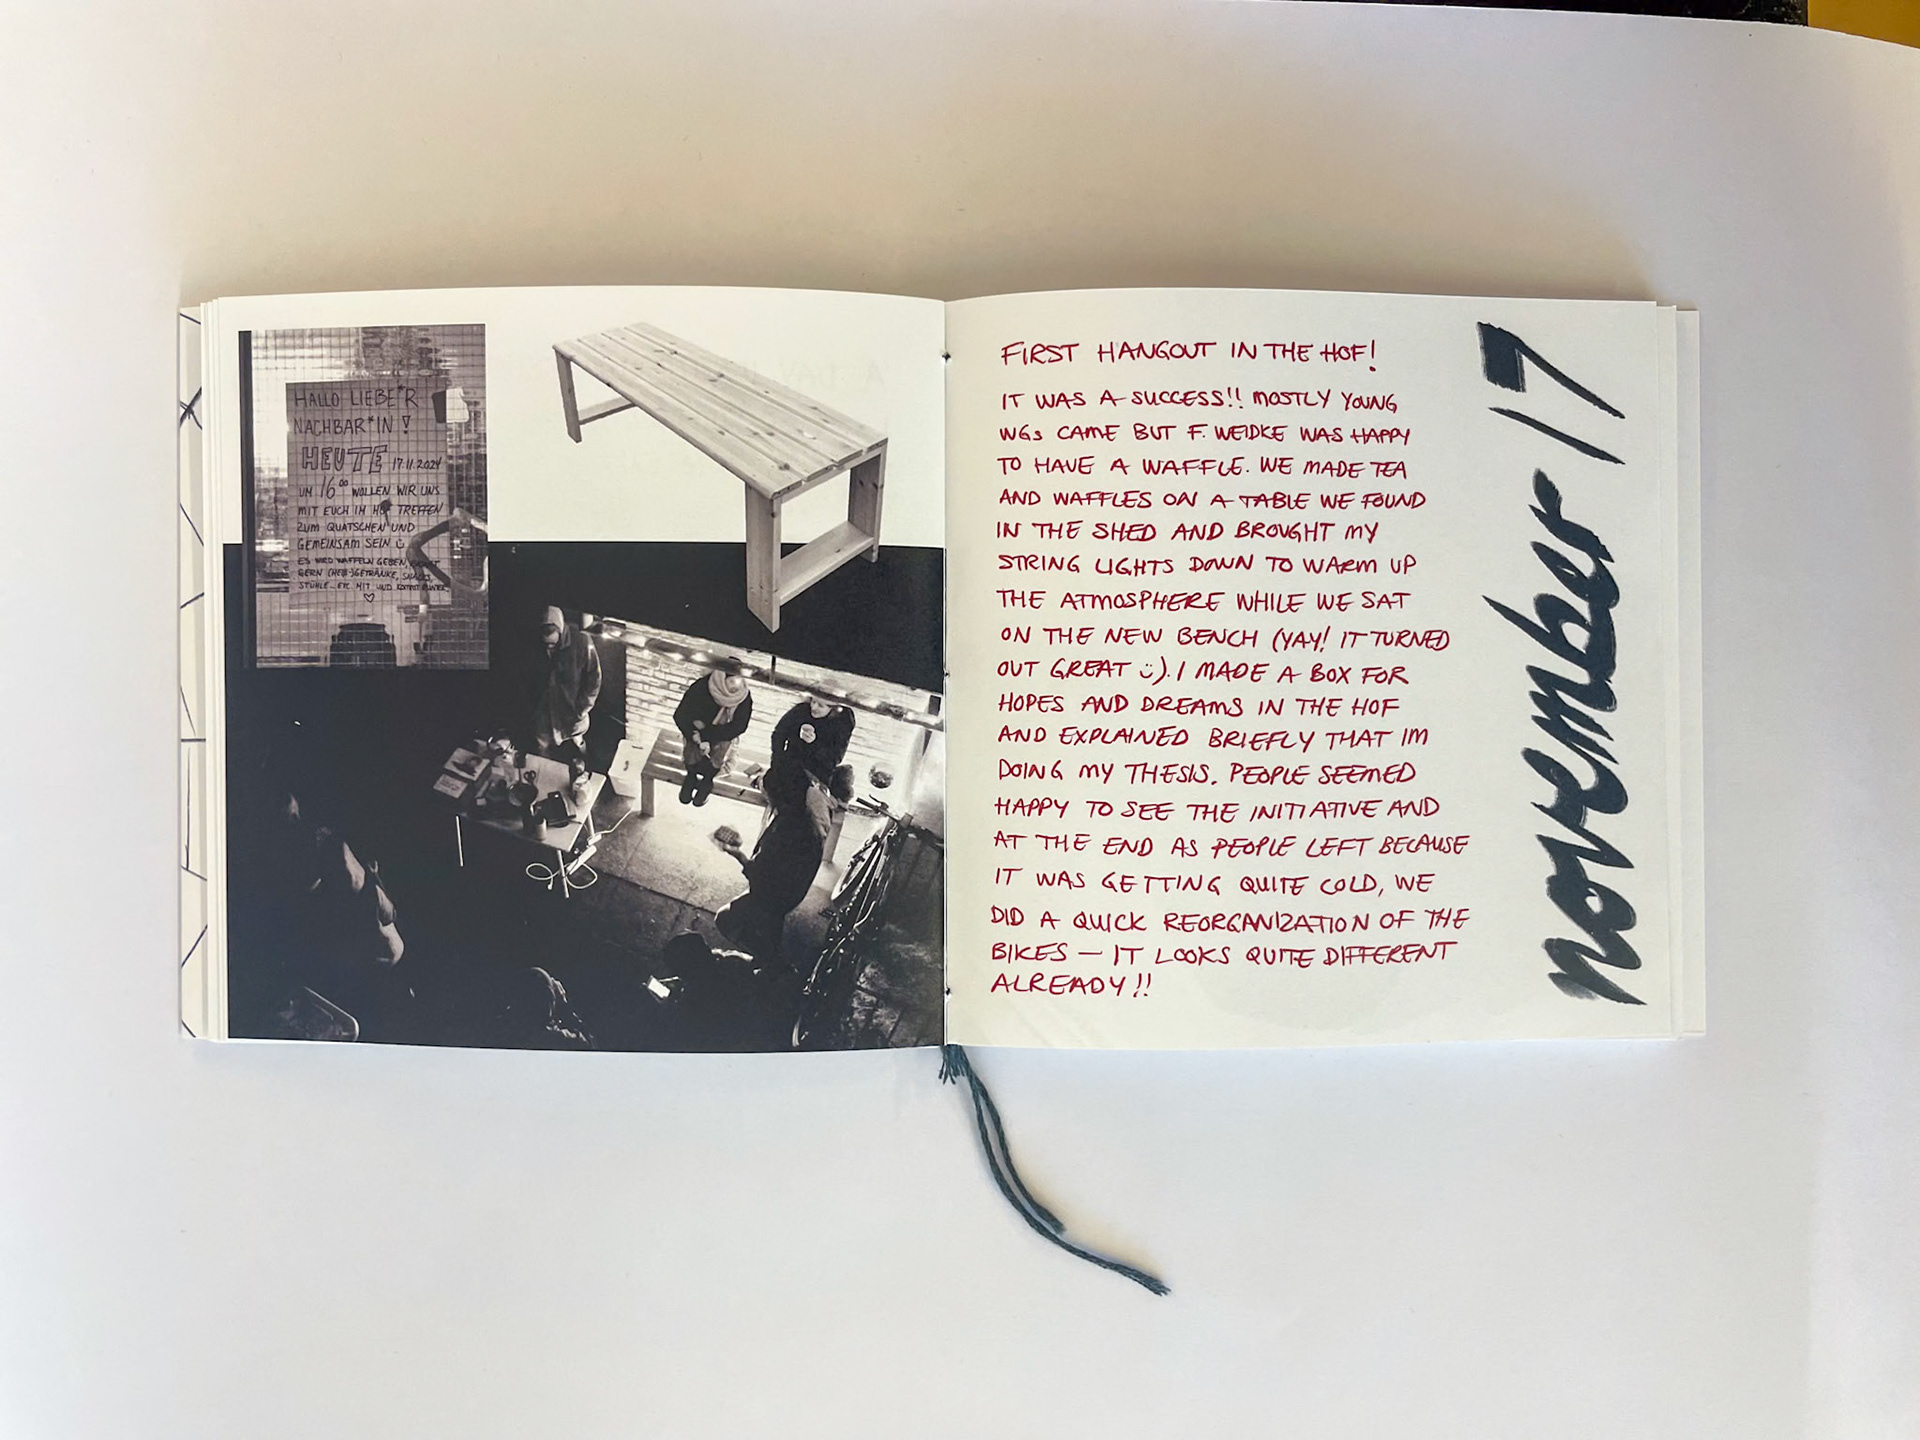 HALLO LIEBE*R
NACHBAR*IN!
HEUTE 17.11.2024
UM 16⁰⁰ WOLLEN WIR UNS
MIT EUCH IM HOF TREFFEN
ZUM QUATSCHEN UND
GEMEINSAM SEIN
ES WIRD WAFFELN GEBEN,
GERN (HEIß-)GETRÄNKE, SNACKS,
STÜHLE... ETC. MIT UND KOMMT
FIRST HANGOUT IN THE HOF!
IT WAS A SUCCESS!! MOSTLY YOUNG
WGs CAME BUT F. WEIDKE WAS HAPPY
TO HAVE A WAFFLE. WE MADE TEA
AND WAFFLES ON A TABLE WE FOUND
IN THE SHED AND BROUGHT MY
STRING LIGHTS DOWN TO WARM UP
THE ATMOSPHERE WHILE WE SAT
ON THE NEW BENCH (YAY! IT TURNED
OUT GREAT :). I MADE A BOX FOR
HOPES AND DREAMS IN THE HOF
AND EXPLAINED BRIEFLY THAT IM
DOING MY THESIS. PEOPLE SEEMED
HAPPY TO SEE THE INITIATIVE AND
AT THE END AS PEOPLE LEFT BECAUSE
IT WAS GETTING QUITE COLD, WE
DID A QUICK REORGANIZATION OF THE
BIKES — IT LOOKS QUITE DIFFERENT
ALREADY!!
november 17